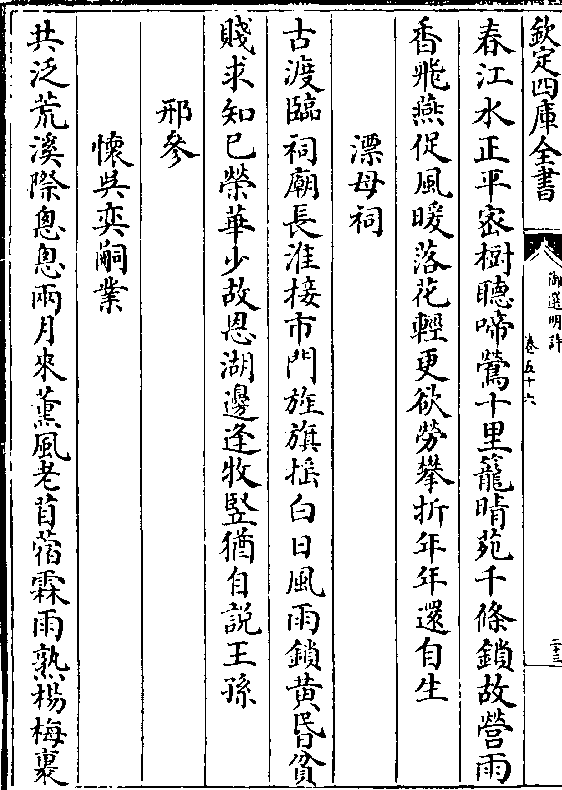 欽定四庫全書
御選明詩
卷五十六
二十三
春江水正平宻樹聴啼鶯十里籠晴苑千條鎖故營雨
香飛燕促風暖落花輕更欲勞攀折年年還自生
漂母祠
古渡臨祠廟長淮接市門旌旗揺白日風雨鎖黄昏貧
賤求知已榮華少故恩湖邊逢牧豎猶自說王孫
邢參
懷吳奕嗣業
共泛荒溪際怱怱兩月來薰風老苜蓿霖雨熟楊梅裹